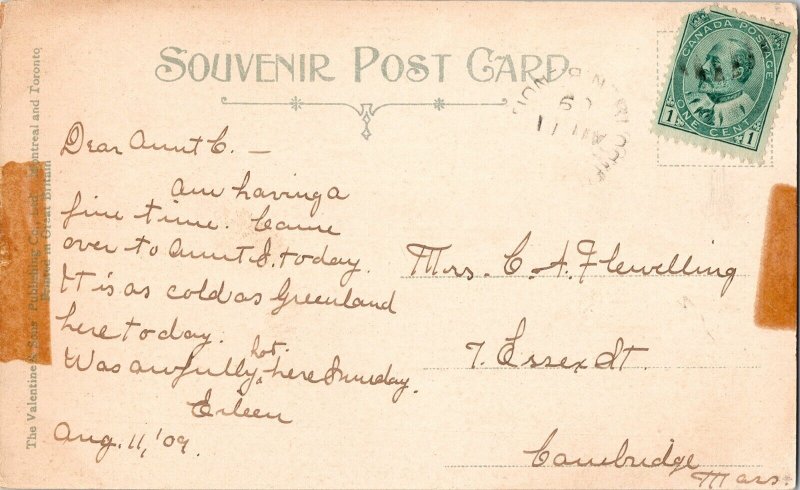 SOUVENIR POST CARD
CANADA POSTAGE
ONE CENT
1 1
AU 11
09
N.B.
Dear Aunt C. —
Am having a
fine time. Came
over to Aunt S. today.
It is as cold as Greenland
here today.
Was awfully hot here Sunday.
Eileen
Aug. 11, '09.
Mrs. C. A. Flewelling
7. Essex St.
Cambridge
Mass.
The Valentine & Sons Publishing Co., Ltd., Montreal and Toronto
Printed in Great Britain